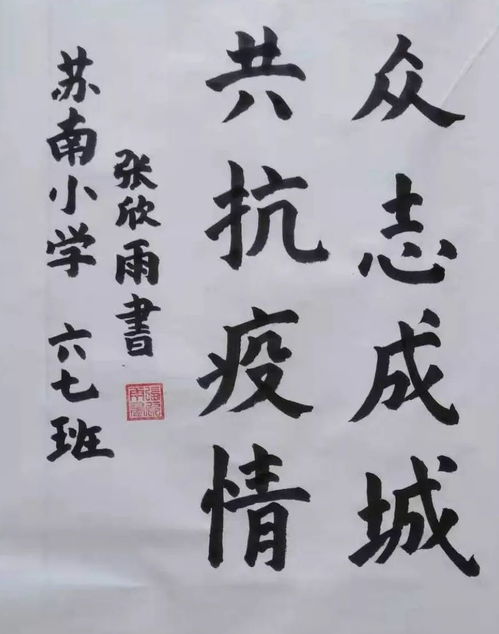 众志成城
共抗疫情
张欣雨書
苏南小学 六七班